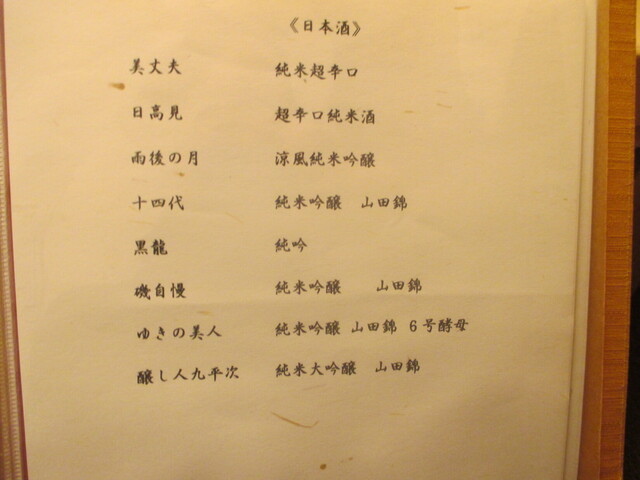 《日本酒》
美丈夫 純米超辛口
日高見 超辛口純米酒
雨後の月 涼風純米吟醸
十四代 純米吟醸 山田錦
黒龍 純吟
磯自慢 純米吟醸 山田錦
ゆきの美人 純米吟醸 山田錦 6号酵母
醸し人九平次 純米大吟醸 山田錦